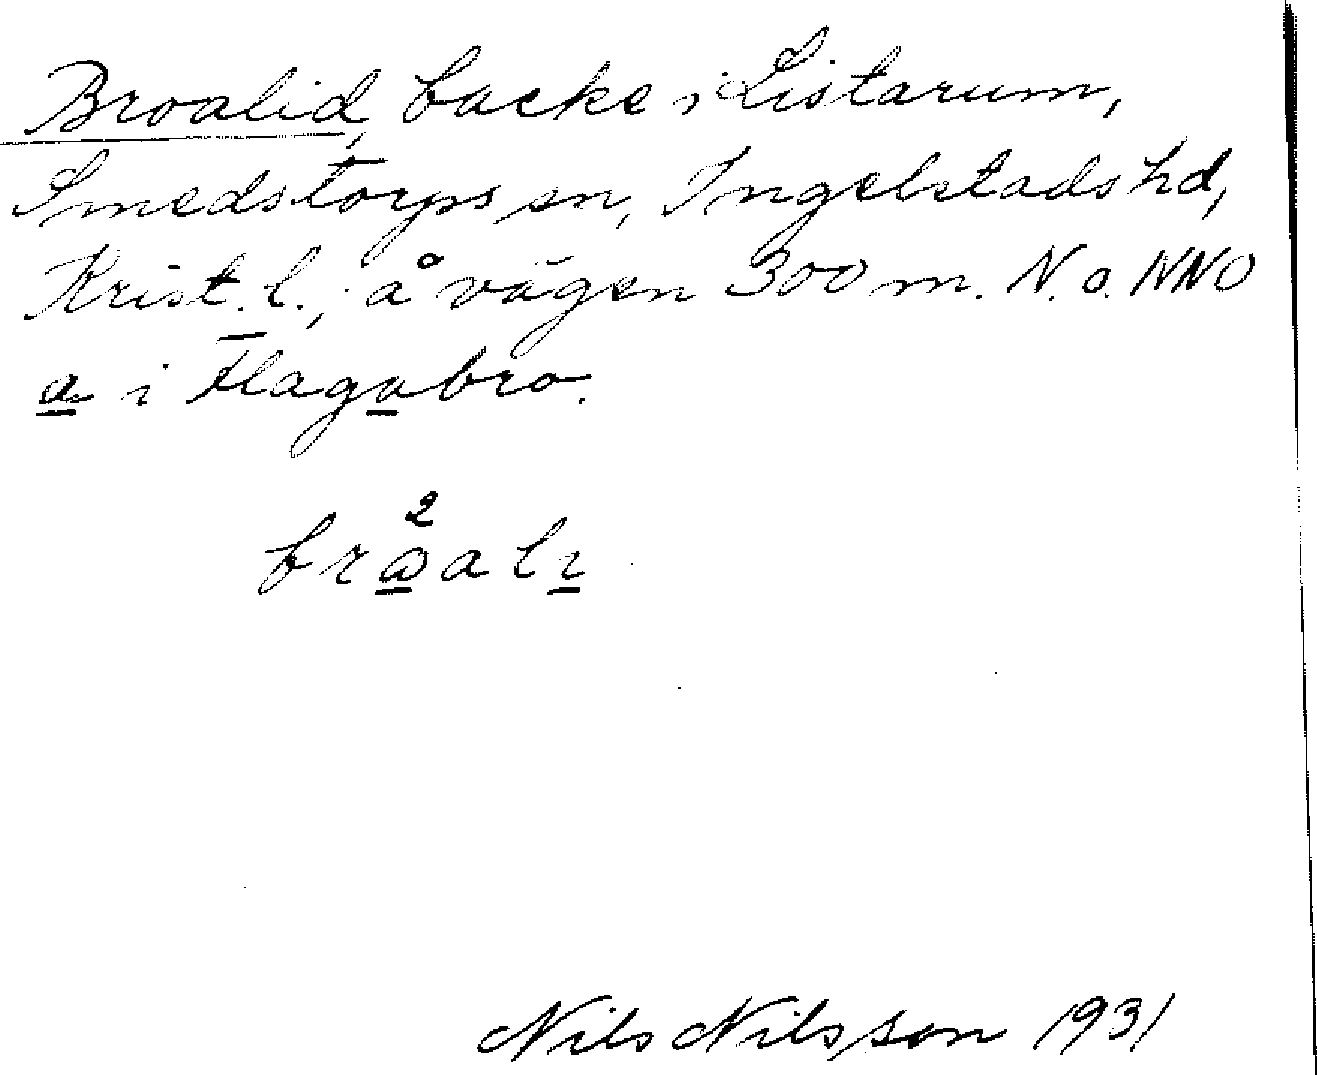 Broalid, backe i Listarum,
Smedstorps sn, Ingelstads hd,
Krist. l., å vägen 300 m. N. o. NNO
a i Hagabro.
2
brωali
Nils Nilsson 1931